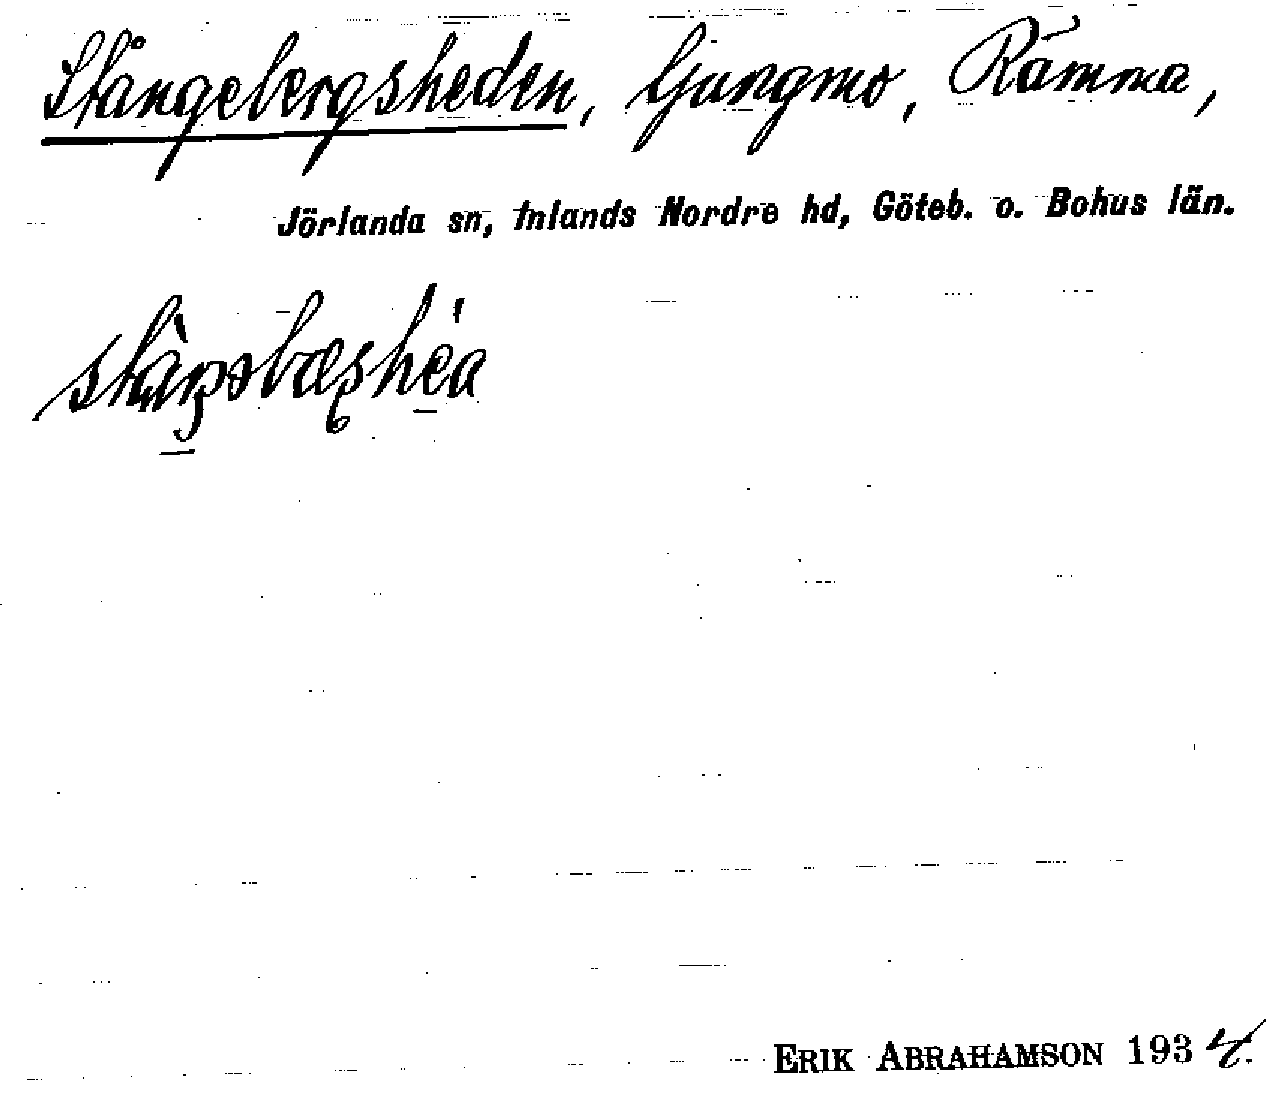 Stångebergsheden, ljungmo, Rämma,
Jörlanda sn, Inlands Nordre hd, Göteb. o. Bohus län.
ERIK ABRAHAMSON 1934.